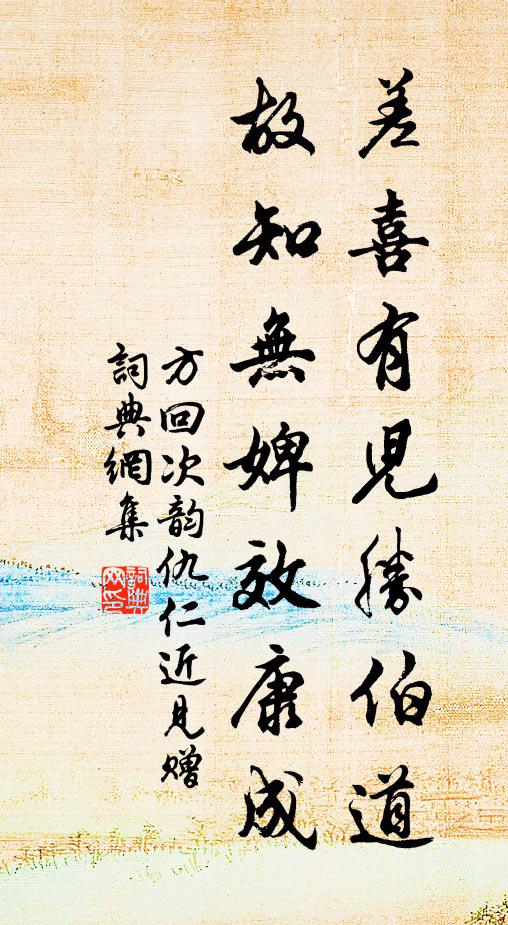 差喜有児勝伯道
故知無婢效康成
方回次韵仇仁近見贈
詞典網集